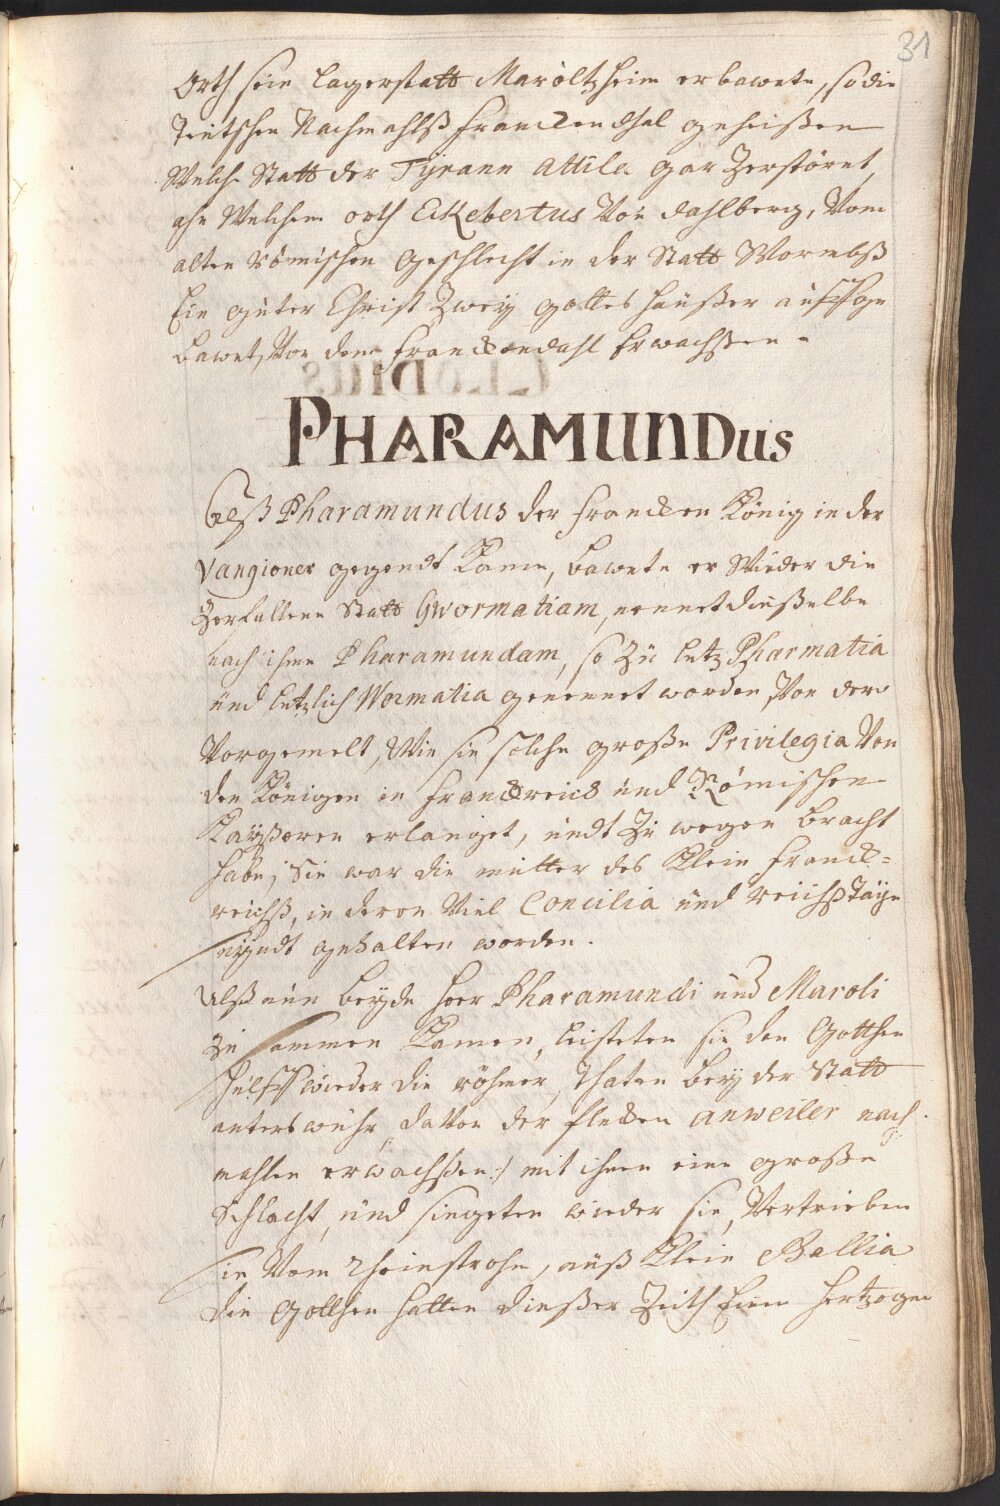 31
Orth sein Lagerstatt Maroltzheim erbawete, so die
Teütschen Nachmahlß Franckendhal geheißen
Welche Statt der Tÿrann Attila gar Zerstöret,
ahn Welchem orth Eckebertus Von Dahlberg, Vom
alten Römischen Geschlecht in der Statt Wormbß
Ein gúter Christ Zweÿ gottes haüßer aúffge
bawet, Von dem Franckendahl Erwachßen.
PHARAMUNDus
Alß Pharamundus der Francken König in der
Vangioner gegendt Kame, bawete er Wieder die
Zerfallene Statt Gwormatiam, nennet dießelbe
nach ihme Pharamundam, so Zú letz Pharmatia
únd letzlich Wormatia genennet worden, Von dero
Vorgemelt, Wie sie solche große Privilegia Von
den Königen in Franckreich únd Römischen
Kaÿßeren erlanget, úndt Zú wegen bracht
habe, Sie war die mútter des Klein Franck=
reichß, in deren Viel Concilia únd reichßTäge
seÿndt gehalten worden.
Alß nún beÿde Heer Pharamundi únd Maroli
Zú sammen Kamen, leisteten sie den Gotthen
hülff wieder die röhmer, thaten beÿ der Statt
anterswihr, davon der flecken anweiler nach
mahlen erwachßen :/ mit ihnen eine große
Schlacht, únd siegeten wieder sie, Vertrieben
sie Vom Rheinstrohm, aúß Klein Gallia
die Gotthen hatten dießer Zeith Einen Hertzogen